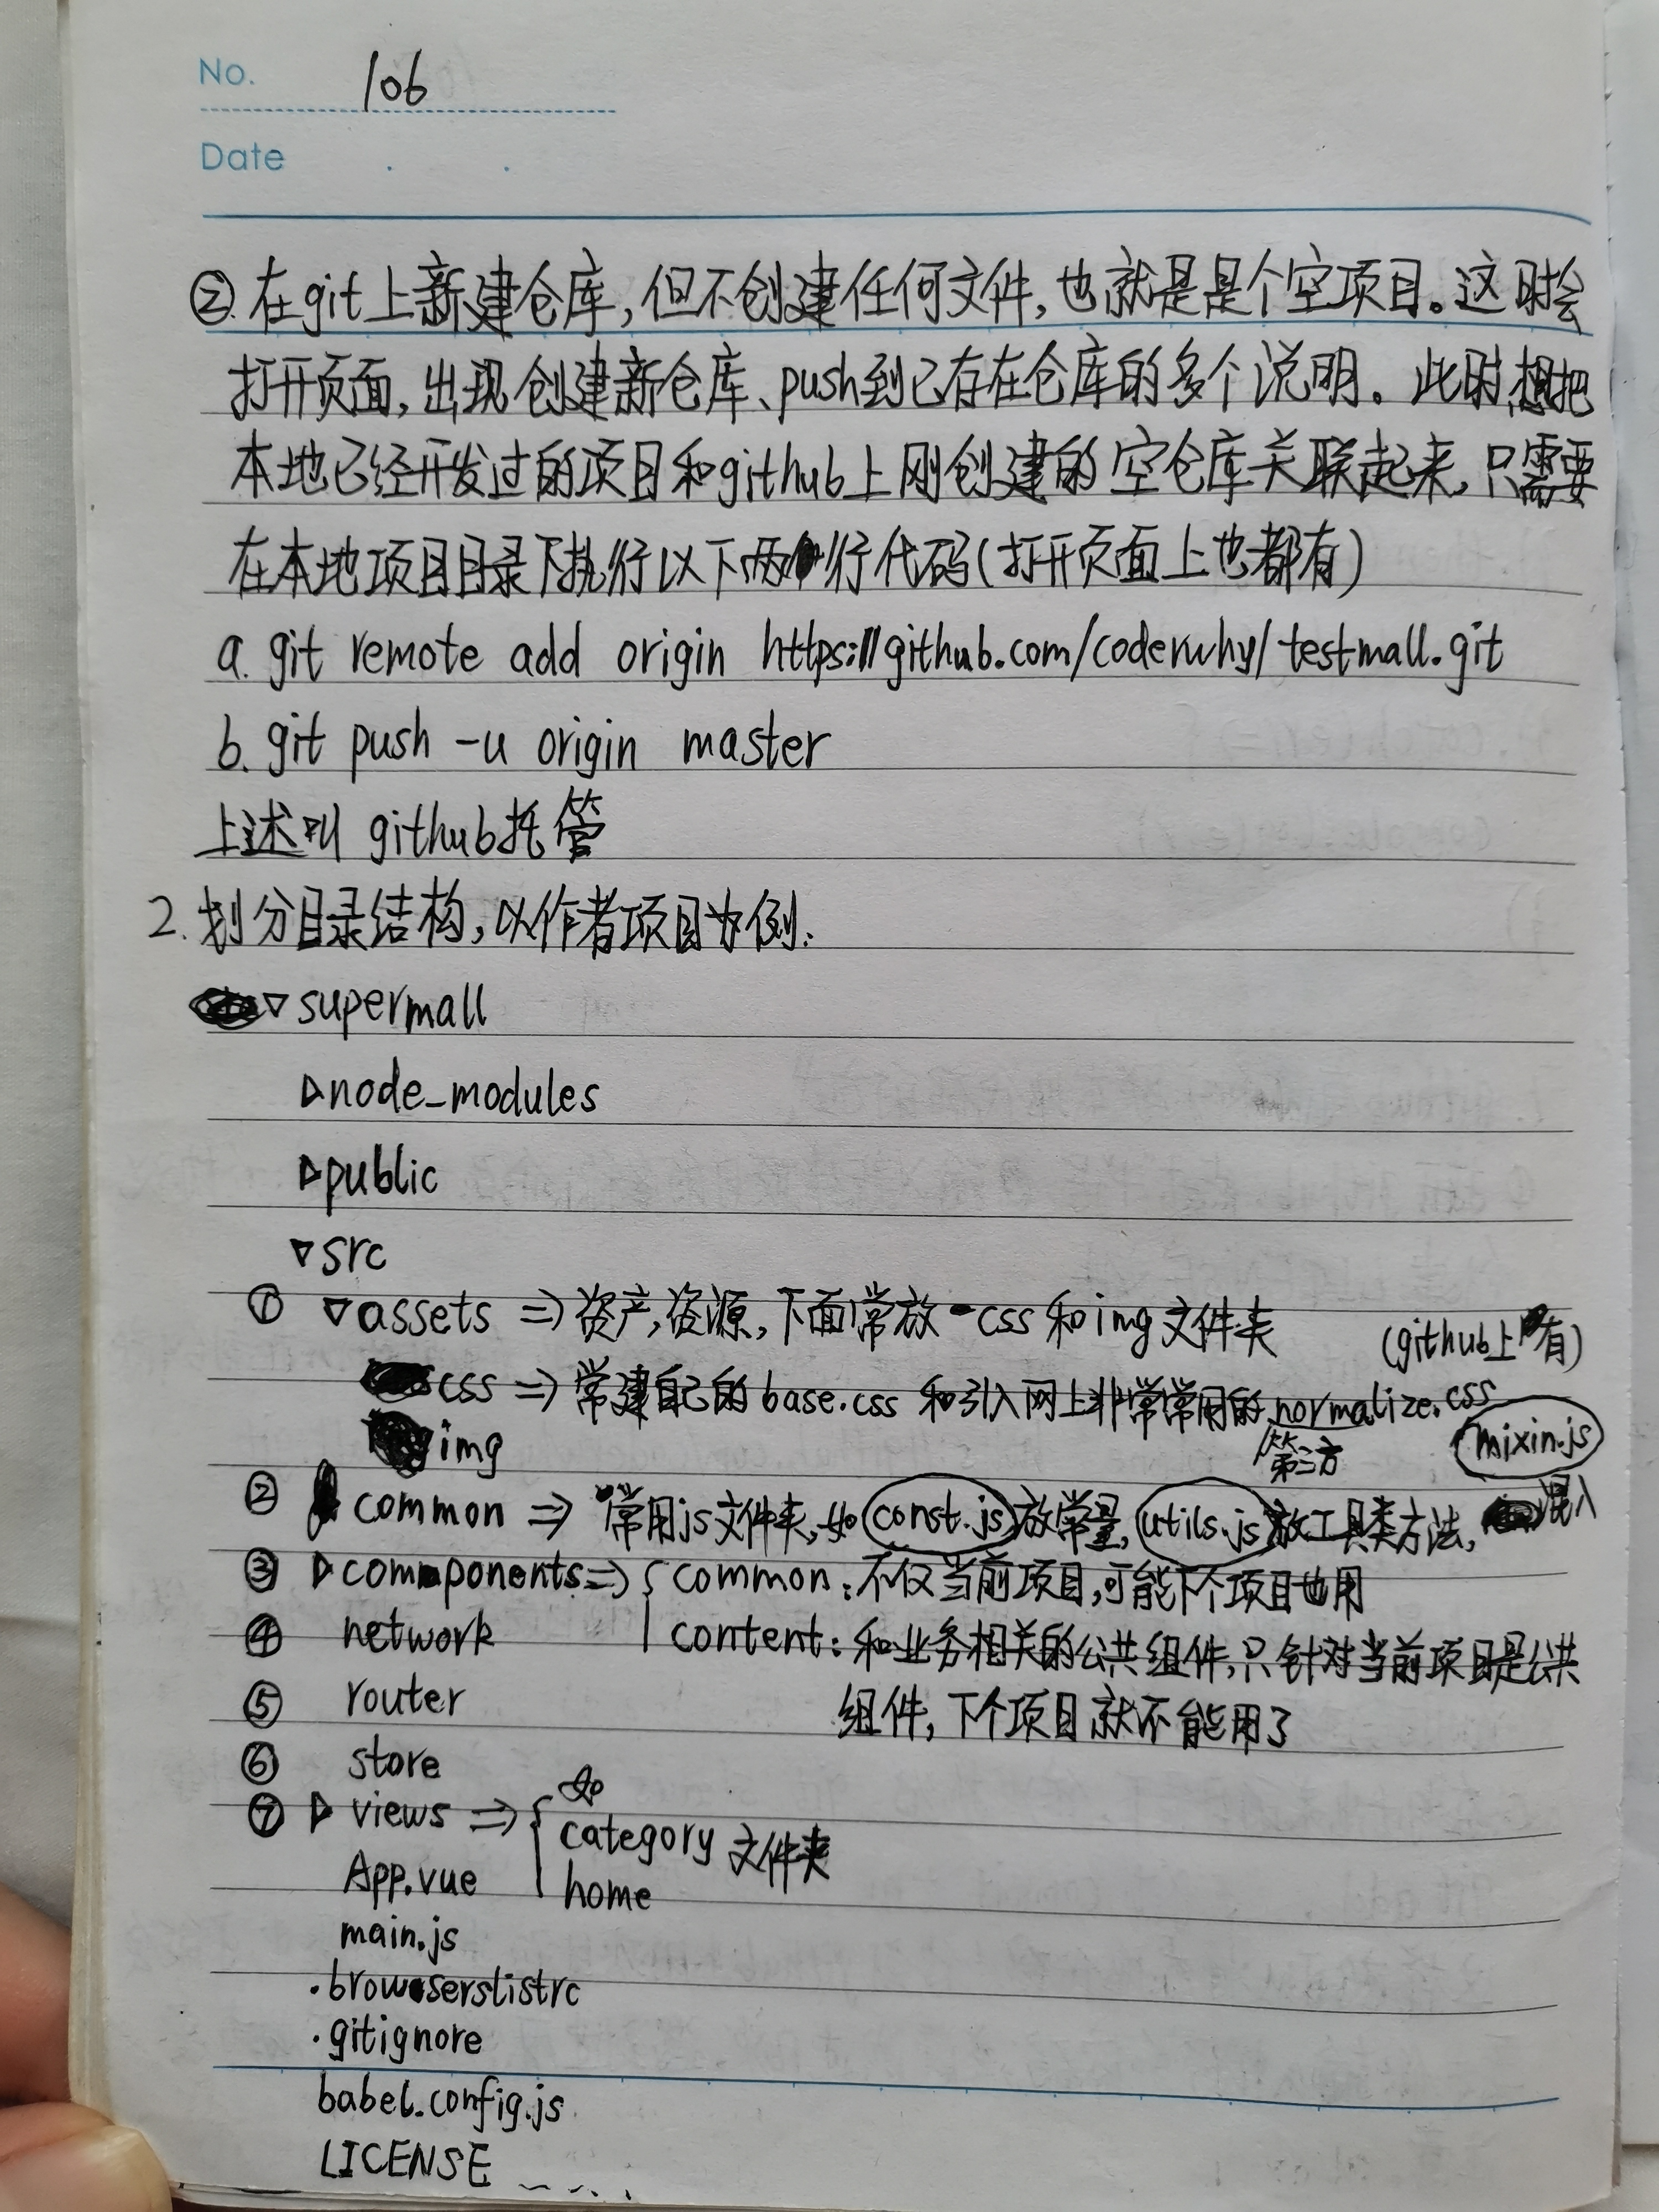 No. 106
Date
② 在git上新建仓库,但不创建任何文件,也就是是个空项目。这时会
打开页面,出现创建新仓库、push到已存在仓库的多个说明。此时,想把
本地已经开发过的项目和github上刚创建的空仓库关联起来,只需要
在本地项目目录下执行以下两行代码(打开页面上也都有)
a. git remote add origin https://github.com/coderwhy/testmall.git
b. git push -u origin master
上述叫 github托管
2. 划分目录结构,以作者项目为例:
▽ supermall
▷node_modules
▷public
▽src
① ▽assets => 资产,资源,下面常放css和img文件夹
(github上有)
css => 常建自己的base.css 和引入网上非常常用的 normalize.css
第三方
img
mixin.js
② common => 常用js文件夹,如const.js放常量,utils.js放工具类方法, 混入
③ ▷components => { common:不仅当前项目,可能下个项目也用
④ network content:和业务相关的公共组件,只针对当前项目是公共
⑤ router 组件,下个项目就不能用了
⑥ store
如
⑦ ▷ views => { category 文件夹
App.vue home
main.js
.browserslistrc
.gitignore
babel.config.js
LICENSE ....